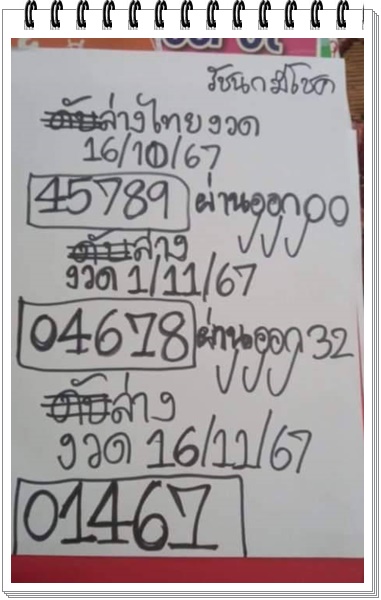 รัชนก มีโชค
ดับล่างไทยงวด
16/10/67
45789 ผ่านออก 00
ดับล่าง
งวด 1/11/67
04678 ผ่านออก 32
ดับล่าง
งวด 16/11/67
01467